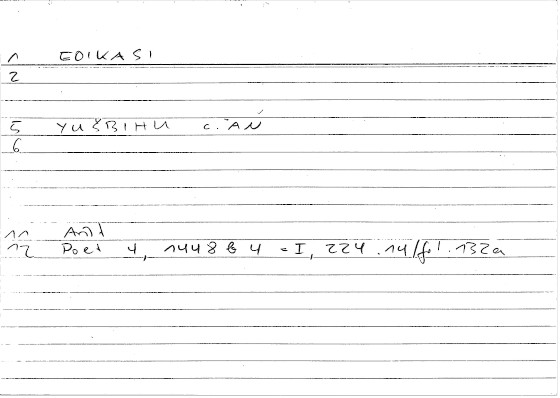 1 EOIKASI
2
5 YUŠBIHU C. AN
6
11 Arist
12 Poet 4, 1448 b 4 = I, 224.14/fol.132a